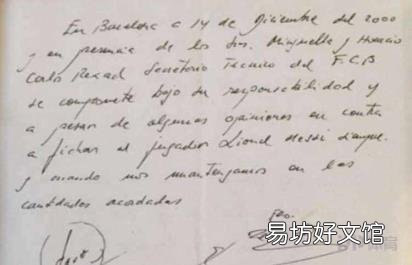 En Barcelona a 14 de Diciembre del 2000
y en presencia de los Srs. Minguella y Horacio
Carlos Rexach Secretario Técnico del F.C.B
se compromete bajo su responsabilidad y
a pesar de algunas opiniones en contra
a fichar al jugador Lionel Messi
y cuando nos mantengamos en las
cantidades acordadas
易坊好文馆